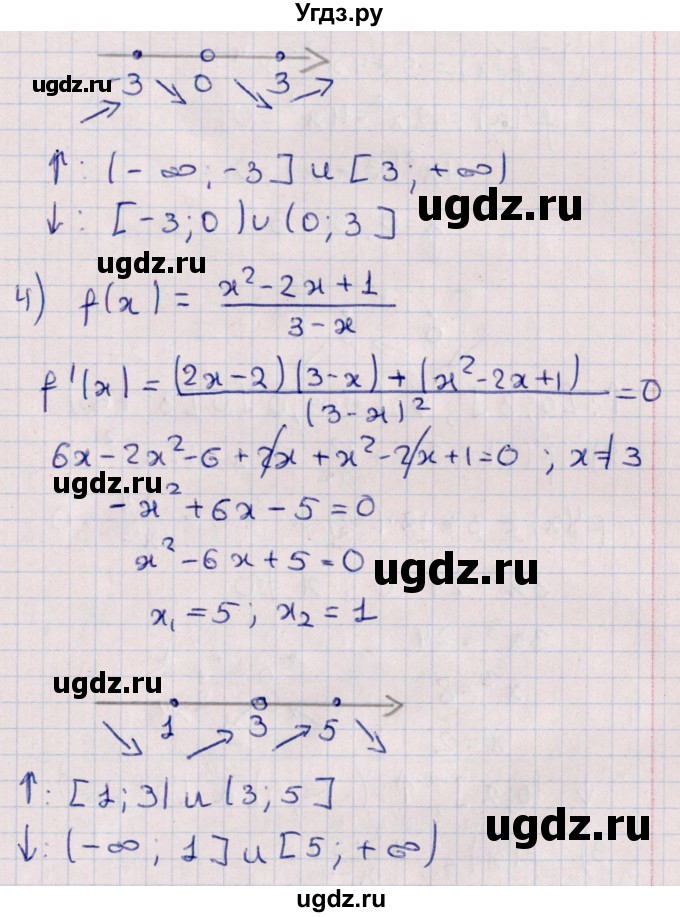 Угдз.ру
ugdz.ru
-3 ↘ 0 ↘ 3 ↗
↗
↑: (-∞; -3] ∪ [3; +∞)
ugdz.ru
↓: [-3; 0) ∪ (0; 3]
ugdz.ru
4) f(x) = (x² - 2x + 1) / (3 - x)
f'(x) = ((2x-2)(3-x) + (x²-2x+1)) / (3-x)² = 0
6x - 2x² - 6 + 2x + x² - 2x + 1 = 0 ; x ≠ 3
ugdz.ru
-x² + 6x - 5 = 0
x² - 6x + 5 = 0
ugdz.ru
x₁ = 5; x₂ = 1
ugdz.ru
↘ 1 ↗ 3 ↗ 5 ↘
↑: [1; 3) ∪ (3; 5]
ugdz.ru
↓: (-∞; 1] ∪ [5; +∞)
ugdz.ru